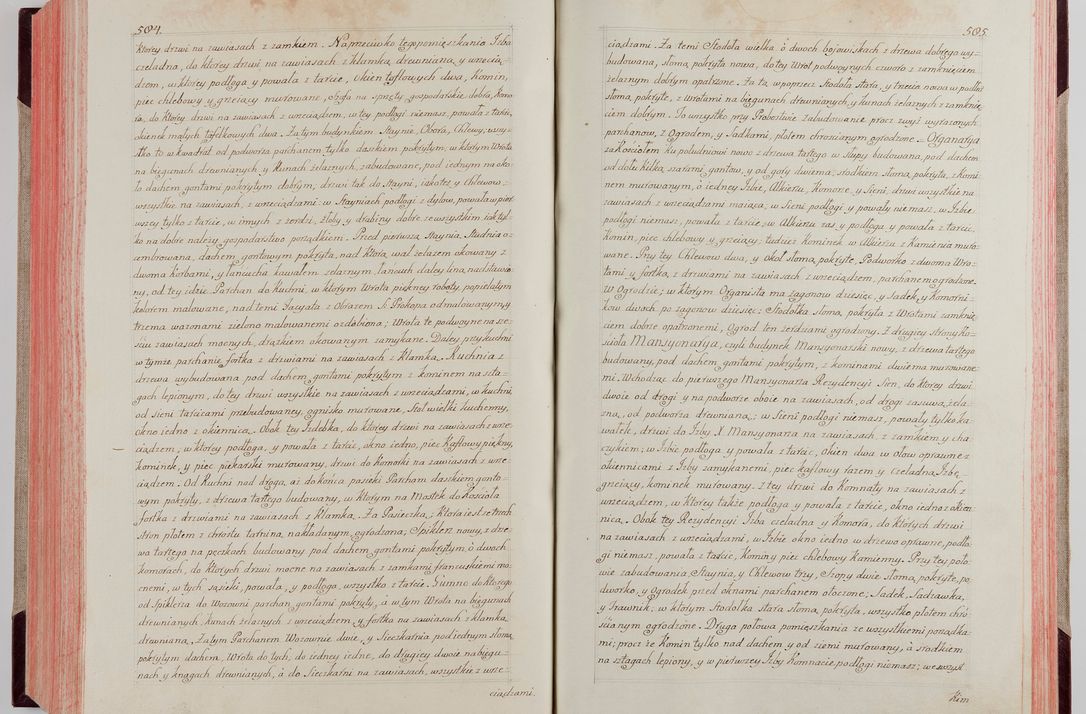 504.
ktorey drzwi na zawiasach z zamkiem. Naprzeciwko tego pomięszkania Izba
czeladna, do ktorey drzwi na zawiasach z klamką drewnianą, y wrzecią-
dzem, w ktorey podłoga y powała z tarcic, okien taflowych dwa, komin,
piec chlebowy y grzeiący murowane, Szafa na sprzęty gospodarskie dobra, Komo-
ra, do ktorey drzwi na zawiasach z wrzeciądzem, w tey podłogi niemasz, powała z tarcic,
okienek małych tafelkowych dwa. Za tym budynkiem Staynie, Obora, Chlewy, wszy-
stko to w kwadrat od podworza parchanem tylko daszkiem pokrytym, w ktorym Wrota
na biegunach drewnianych, y kunach żelaznych, zabudowane, pod iednym na oko-
ło dachem gontami pokrytym dobrym, drzwi tak do Stayni, iako też y Chlewow
wszystko na zawiasach, z wrzeciądzami: w Stayniach podłogi z dylow, powała w pier-
wszey tylko z tarcic, w innych z żerdzi, żłoby y drabiny dobre ze wszystkim iak tyl-
ko na dobre należy gospodarstwo porządkiem. Przed pierwszą Staynią, Studnia o-
cembrowana, dachem gontowym pokryta, nad którą wał żelazem okowany z
dwoma korbami, y łancucha kawałem żelaznym, łancuch daley lina, nadsztawio-
ny, od tey idzie Parchan do Kuchni, w ktorym Wrota piękney roboty, popielatym
kolorem malowane, nad temi Facyata z Obrazem S. Prokopa odmalowanym, y
trzema wazonami zielono malowanemi ozdobiona; Wrota te podwoyne na sze-
ściu zawiasach mocnych, drążkiem okowanym zamykane. Daley przy kuchni
w tymże parchanie fortka z drzwiami na zawiasach z klamką. Kuchnia z
drzewa wybudowana pod dachem gontami pokrytym z kominem na szta-
gach lepionym, do tey drzwi wszystkie na zawiasach z wrzeciądzami, w kuchni
od sieni tarcicami przebudowaney, ognisko murowane, Stoł wielki kuchenny,
okno iedno z okiennicą. Obok tey Izdebka, do ktorey drzwi na zawiasach z wrze-
ciądzem, w ktorey podłoga, y powała z tarcic, okno iedno, piec kaflowy piękny,
kominek, y piec piekarski murowany, drzwi do Komorki na zawiasach z wrze-
ciądzem. Od Kuchni nad drogą, aż do końca pasieki Parcham daszkiem gonto-
wym pokryty, z drzewa tartego budowany, w ktorym na Mostek do Kościoła
fortka z drzwiami na zawiasach z klamką. Za Pasieczką, ktora iest ze trzech
stron płotem z chrostu tartiną, nakładanym, ogrodzona, Spiklerz nowy, z drze-
wa tartego na pęczkach budowany pod dachem gontami pokrytym, ô dwoch
komorach, do ktorych drzwi mocne na zawiasach z zamkami francuskiemi mo-
cnemi, w tych sąsieki, powała, y podłoga, wszystko z tarcic. Gumno do ktorego
od Spiklerza do Wozowni parchan, gontami pokryty, â w tym Wrota na biegunach
drewnianych, kunach żelaznych z wrzeciądzem, y fortka na zawiasach z klamką
drewnianą. Za tym Parchanem Wozownie dwie, y Sieczkarnia pod iednym słomą
pokrytym dachem, Wrota do tych, do iedney iedne, do drugiey dwoie na biegu-
nach y knagach drewnianych, â do Sieczkarni na zawiasach, wszystkie z wrze-
ciądzami.
505.
ciądzami. Za temi Stodoła wielka ô dwoch boiowiskach z drzewa dobrego wy-
budowana, słomą pokryta nowa, do tey Wrot podwoynych czworo z zamknięciem
żelaznym dobrym opatrzone. Za tą w poprzecz Stodoła stara, y trzecia nowa w podłuż
słomą pokryte, z Wrotami na biegunach drewnianych, y kunach żelaznych z zamknię-
ciem dobrym. To wszystko przy Probostwie zabudowanie procz zwyż wyrażonych
parchanow, z Ogrodem, y Sadkami, płotem chroscianym ogrodzone. Organarya
za Kosciołem ku południowi nowo z drzewa tartego w słupy budowana, pod dachem
od dołu kilką szarami gontow, y od gory dwiema, srodkiem słomą pokryta, z komi-
nem murowanym, ô iedney Izbie, Alkierzu, Komorze, y Sieni, drzwi wszystkie na
zawiasach z wrzeciądzami maiąca, w Sieni podłogi y powały niemasz, w Izbie
podłogi niemasz, powała z tarcic, w Alkierzu zaś y podłoga y powała z tarcic,
Komin, piec chlebowy y grzeiący, tudzież kominek w Alkierzu z Kamienia muro-
wane. Przy tey Chlewow dwa, y okoł słomą pokryte. Podworko z dwoma Wro-
tami y fortką, z drzwiami na zawiasach z wrzeciądzem, parchanem ogrodzone.
W Ogrodzie; w ktorym Organista ma zagonow dziesięć, y Sadek, y Komorni-
kow dwoch po zagonow dziesięć, z Stodołka słomą pokryta z Wrotami zamknię-
ciem dobrze opatrzonemi, Ogrod ten żerdziami ogrodzony. Z drugiey strony Ko-
scioła Mansyonarya, czyli budynek Mansyonarski nowy, z drzewa tartego
budowany, pod dachem gontami pokrytym, z kominami dwiema murowane-
mi. Wchodząc do pierwszego Mansyonarza Rezydencyi Sień, do ktorey drzwi
dwoie od drogi y na podworze oboie na zawiasach, od drogi zasuwa, żela-
zna, od podworza drewniana; w Sieni podłogi niemasz, powały tylko ka-
wałek, drzwi do Izby X. Mansyonarza na zawiasach, z zamkiem, y cha-
czykiem; w Izbie podłoga y powała z tarcic, okien dwa w ołow oprawne z
okiennicami z Izby zamykanemi, piec kaflowy razem y czeladną Izbę
grzeiący, kominek murowany, z tey drzwi do Komnaty na zawiasach z
wrzeciądzem, w ktorey także podłoga y powała z tarcic, okno iedno z okien-
nicą. Obok tey Rezydencyi Izba czeladna y Komora, do ktorych drzwi
na zawiasach z wrzeciądzami, w Izbie okno iedno w drzewo oprawne, podło-
gi niemasz, powała z tarcic, Kominy piec chlebowy Kamienny. Przy tey poło-
wie zabudowania, Staynia, y Chlewow trzy, Szopy dwie słomą pokryte, po-
dworko, y Ogrodek przed oknami parchanem otoczone; Sadek, Sadzawka,
y Trawnik, w ktorym Stodołka stara słomą pokryta, wszystko płotem chro-
ścianym ogrodzone. Druga połowa pomięszkania ze wszystkiemi porządka-
mi; procz że Komin tylko nad dachem y od ziemi murowany, â srodkiem
na sztagach lepiony, y w pierwszey Izby Komnacie podłogi niemasz; we wszyst-
kim